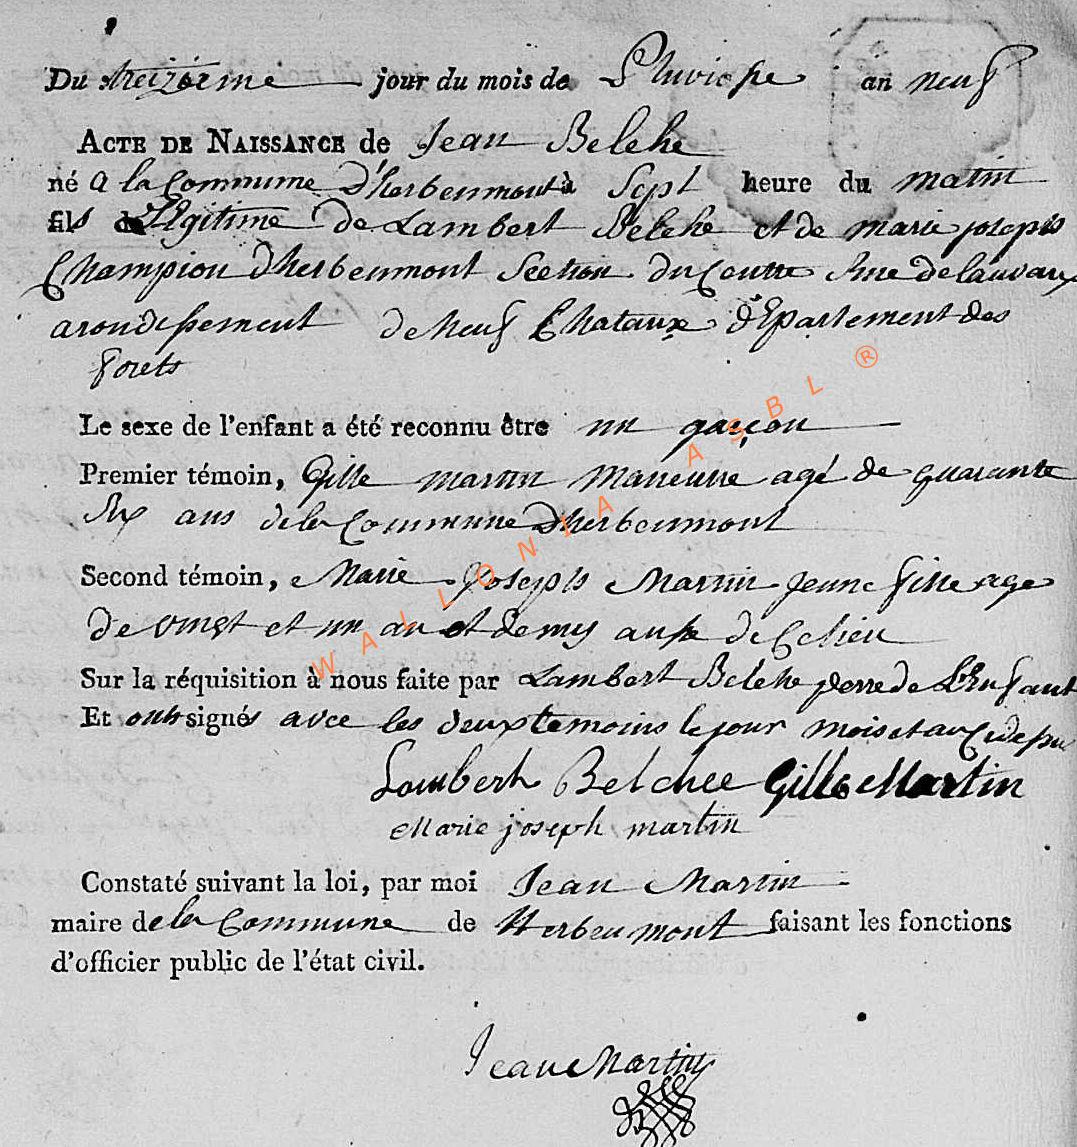 Du treizieme jour du mois de Pluviose an neuf
ACTE DE NAISSANCE de Jean Belche
né a la Commune d'herbeumont à Sept heure du matin
fils de légitime de Lambert Belche et de marie joseph
Champion d'herbeumont Section du Centre de
arondissement de neuf Chataux département des
forets
Le sexe de l'enfant a été reconnu être un garçon
Premier témoin, Gille martin Maneuvre agé de quarante
Six ans de la Commune d'herbeumont
Second témoin, Marie Joseph Martin jeune fille age
de vingt et un an et demy de Ce lieu
Sur la réquisition à nous faite par Lambert Belche perre de L'Enfant
Et ont signés avec les deux temoins le jour mois et an
Lambert Belchee Gille Martin
Marie joseph martin
Constaté suivant la loi, par moi Jean Martin
maire de la Commune de Herbeumont faisant les fonctions
d'officier public de l'état civil.
Jean Martin
WALLONIA ASBL ®